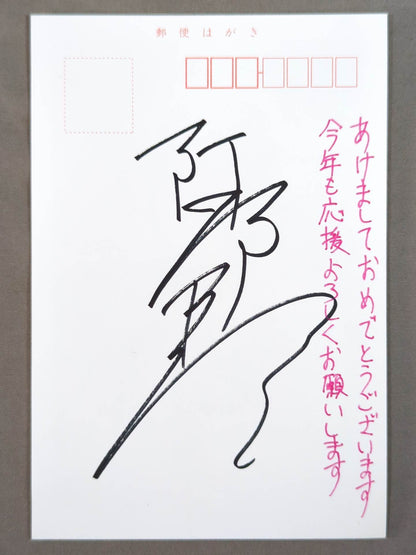 郵便はがき
あけましておめでとうございます
今年も応援よろしくお願いします